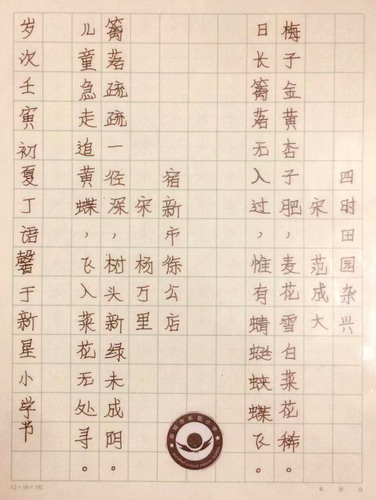 四时田园杂兴
宋 范成大
梅子金黄杏子肥，麦花雪白菜花稀。
日长篱落无人过，惟有蜻蜓蛱蝶飞。
宿新市徐公店
宋 杨万里
篱落疏疏一径深，树头新绿未成阴。
儿童急走追黄蝶，飞入菜花无处寻。
岁次壬寅初夏丁语馨于新星小学书